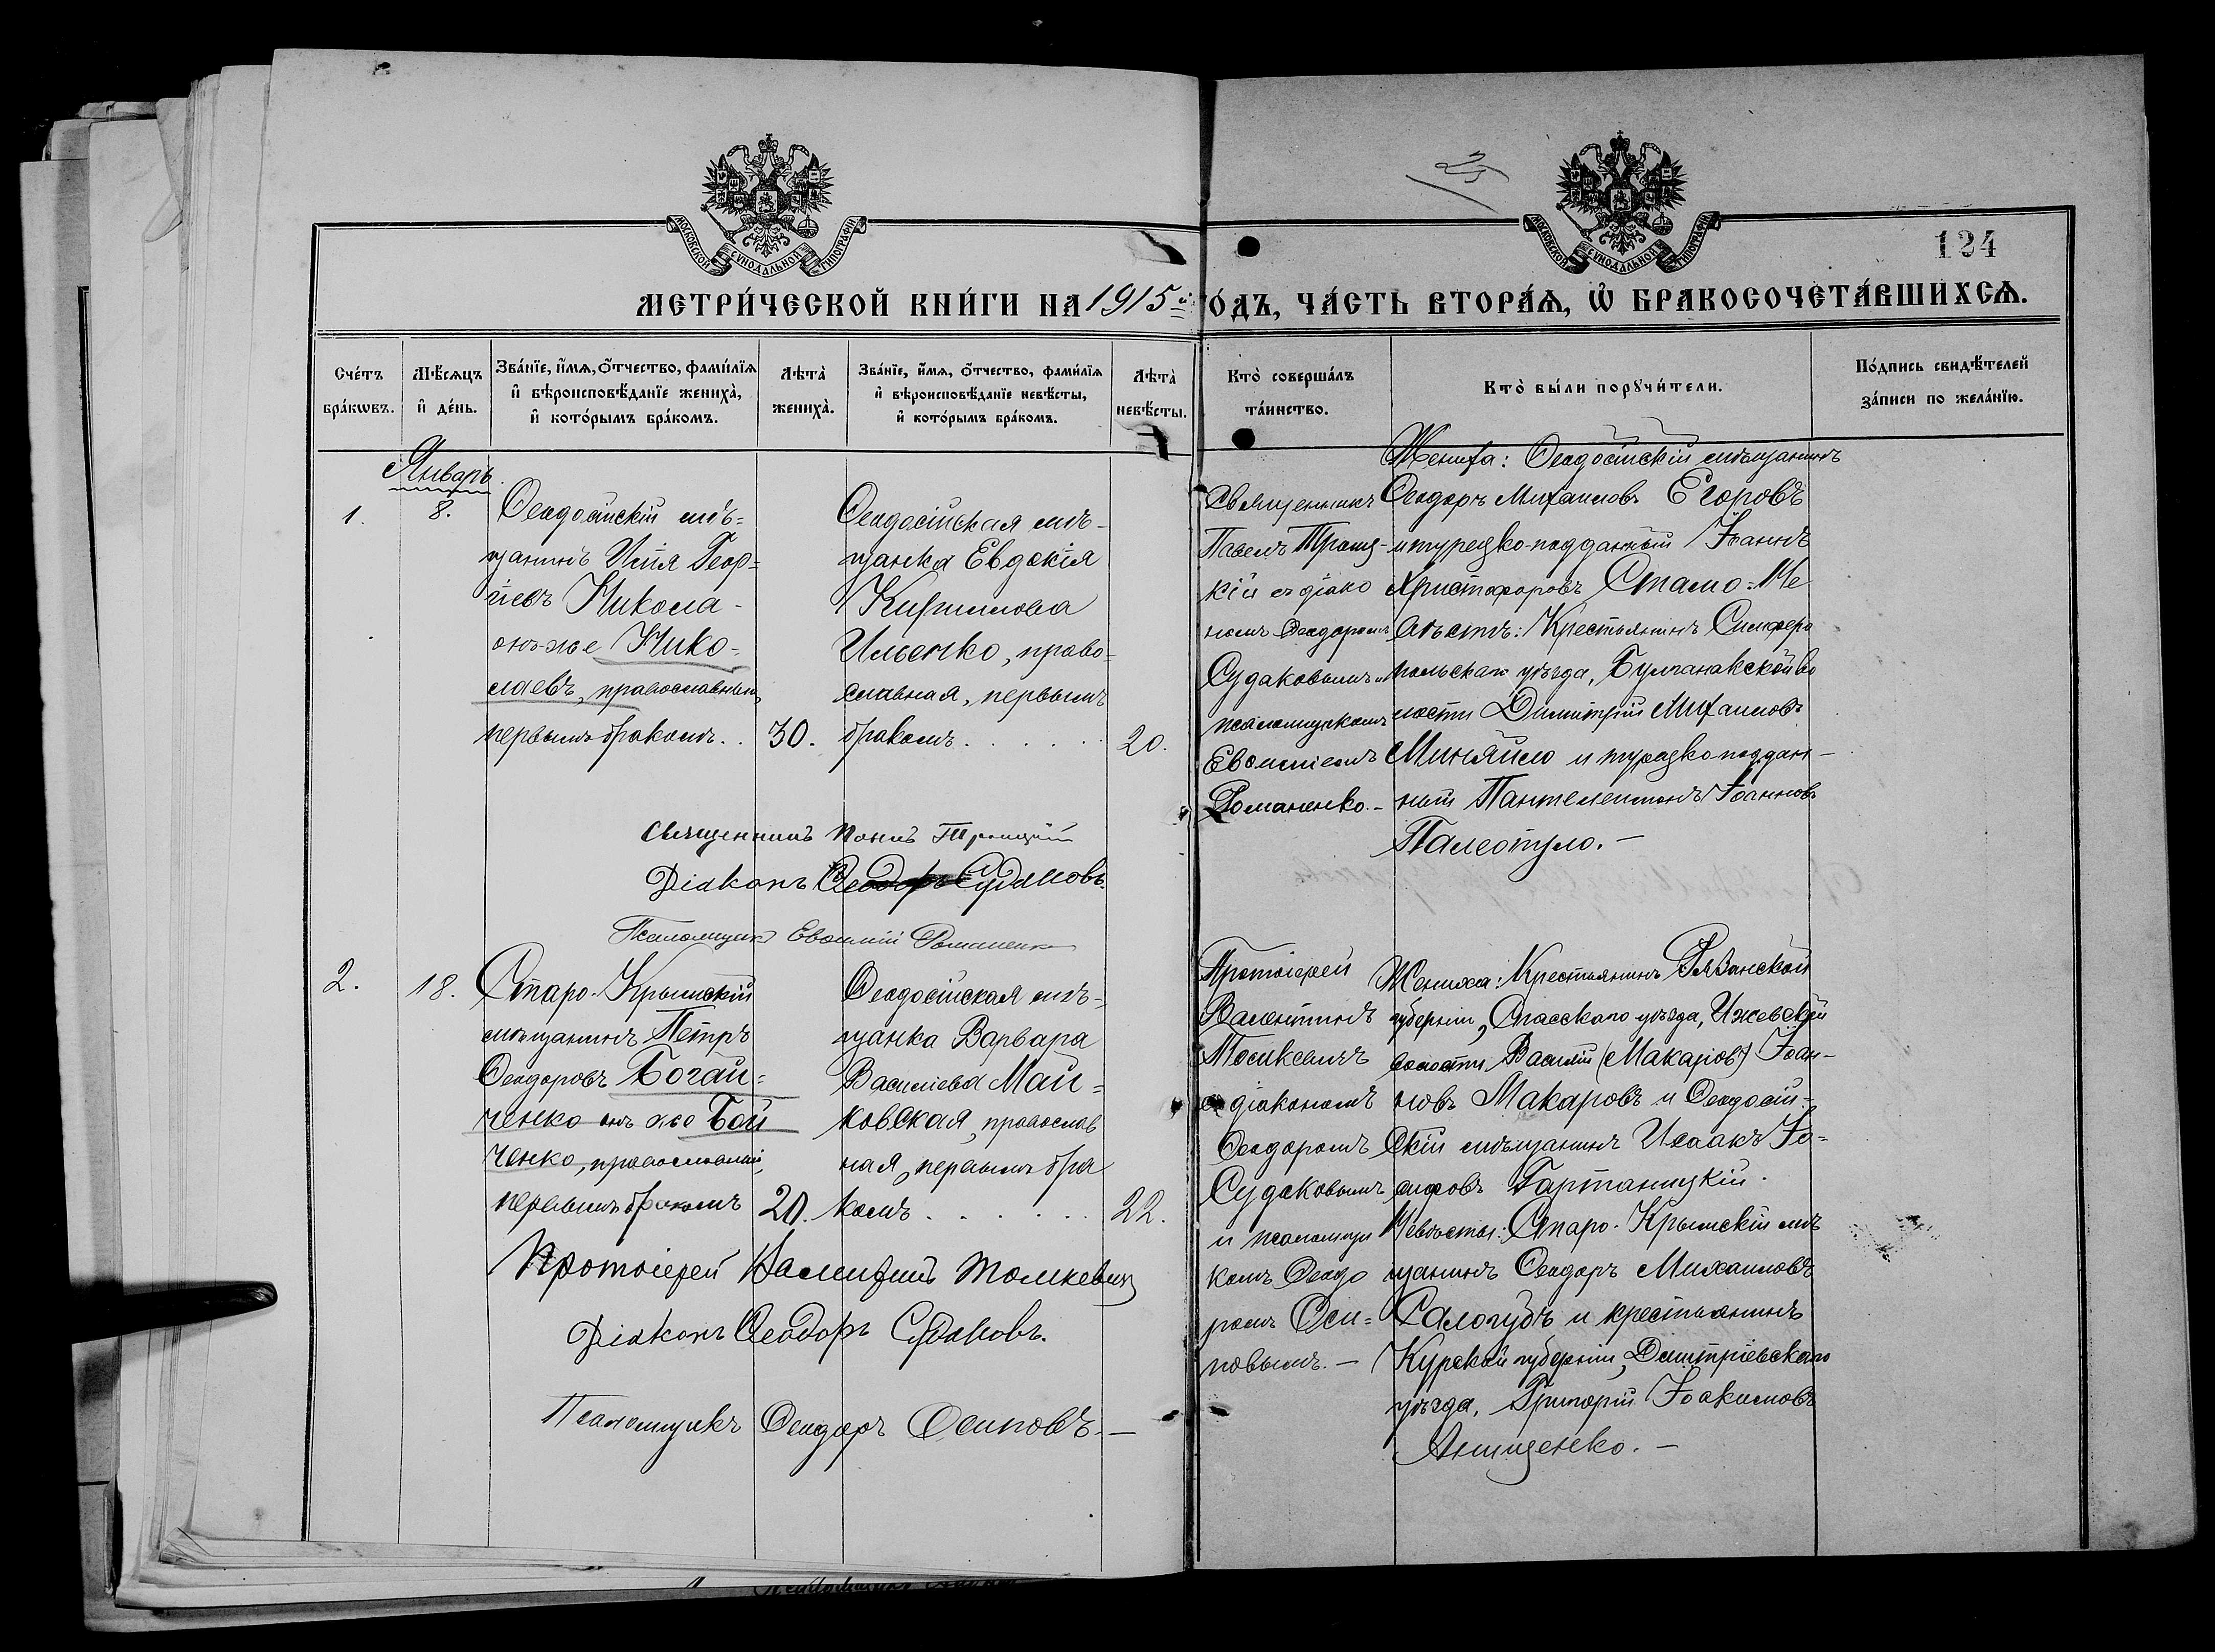 25
124
МОСКОВСКОЙ СѴНОДАЛЬНОЙ ТИПОГРАФІИ
МОСКОВСКОЙ СѴНОДАЛЬНОЙ ТИПОГРАФІИ
МЕТРИ́ЧЕСКОЙ КНИ́ГИ НА 1915й ГО́ДЪ, ЧА́СТЬ ВТОРА́Ѧ, Ѡ҆ БРАКОСОЧЕТА́ВШИХСѦ.
Сче́тъ бра́кѡвъ.
Мѣ́сѧцъ и҆ де́нь.
Зва́нїе, и҆́мѧ, ѻ҆́тчество, фами́лїѧ и҆ вѣроисповѣ́данїе жениха̀, и҆ кото́рымъ бра́комъ.
Лѣта̀ жениха̀.
Зва́нїе, и҆́мѧ, ѻ҆́тчество, фами́лїѧ и҆ вѣроисповѣ́данїе невѣ́сты, и҆ кото́рымъ бра́комъ.
Лѣта̀ невѣ́сты.
Кто̀ соверша́лъ та́инство.
Кто̀ бы́ли порꙋчи́тели.
По́дпись свидѣ́телей за́писи по жела́нїю.
Январь
1.
8.
Ѳеодосійскій мѣ=
щанинъ Илія Геор=
гіевъ Никола-
онъ-же Нико=
лаевъ, православный,
первымъ бракомъ..
30.
Ѳеодосійская мѣ-
щанка Евдокія
Кириллова
Ильенко, право=
славная, первымъ
бракомъ.......
20.
Священникъ
Павелъ Троиц-
кій съ діако
номъ Ѳеодоромъ
Судаковымъ и
псаломщикомъ
Евѳиміемъ
Романенко.-
Жениха: Ѳеодосійскій мѣщанинъ
Ѳеодоръ Михаиловъ Егоровъ
и турецко-подданный Іоаннъ
Христофоровъ Стамо. Не
вѣсты: Крестьянинъ Симферо
польскаго уѣзда, Булганакской во
лости Димитрій Михаиловъ
Миняйло и турецко-поддан-
ный Пантелеимонъ Іоанновъ
Палеотуло.-
Священникъ Павелъ Троицкій
Діаконъ Ѳеодоръ Судаковъ.
Псаломщикъ Евѳимій Романенко
2.
18.
Старо-Крымскій
мѣщанинъ Петръ
Ѳеодоровъ Богай=
ченко онъ же Бой
ченко, православный,
первымъ бракомъ
20.
Ѳеодосійская мѣ-
щанка Варвара
Василіева Май=
ковская, православ
ная, первымъ бра
комъ.......
22.
Протоіерей
Валентинъ
Томкевичъ
съ діакономъ
Ѳеодоромъ
Судаковымъ
и псаломщи
комъ Ѳеодо
ромъ Оси=
повымъ.-
Жениха: Крестьянинъ Рязанской
губерніи, Спасскаго уѣзда, Ижевской
волости Василій (Макаріовъ) Іоан-
новъ Макаровъ и Ѳеодосій-
скій мѣщанинъ Исаакъ Іо=
сифовъ Гартаницкій.
Невѣсты: Старо-Крымскій мѣ
щанинъ Ѳеодоръ Михаиловъ
Салогубъ и крестьянинъ
Курской губерніи, Димитріевскаго
уѣзда, Григорій Іоакимовъ
Анищенко.-
Протоіерей Валентинъ Томкевичъ
Діаконъ Ѳеодоръ Судаковъ.
Псаломщикъ Ѳеодоръ Осиповъ.-